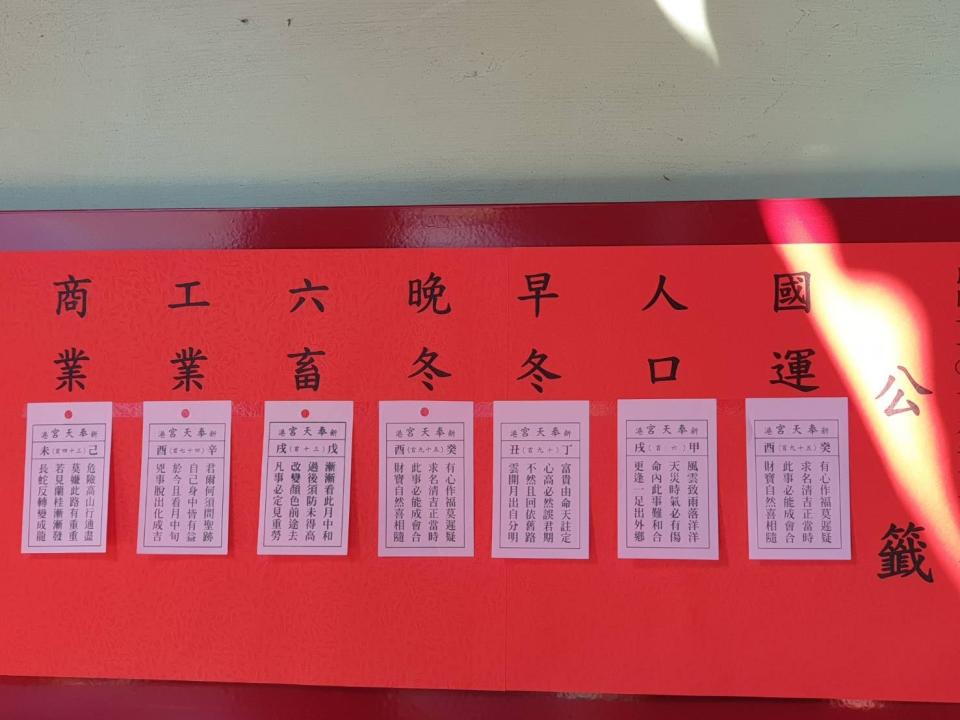 公籤
國運
新 奉天宮 港
癸(五十九首)酉
有心作福莫遲疑
求名清吉正當時
此事必能成會合
財寶自然喜相隨
人口
新 奉天宮 港
甲(六首)戌
風雲致雨落洋洋
天災時氣必有傷
命內此事難和合
更逢一足出外鄉
早冬
新 奉天宮 港
丁(十九首)丑
富貴由命天註定
心高必然誤君期
不然且回依舊路
雲開月出自分明
晚冬
新 奉天宮 港
癸(五十九首)酉
有心作福莫遲疑
求名清吉正當時
此事必能成會合
財寶自然喜相隨
六畜
新 奉天宮 港
戊(十三首)戌
漸漸看此月中和
過後須防未得高
改變顏色前途去
凡事必定見重勞
工業
新 奉天宮 港
辛(四十七首)酉
君爾何須問聖跡
自己身中皆有益
於今且看月中旬
兇事脫出化成吉
商業
新 奉天宮 港
己(三十四首)未
危險高山行過盡
莫嫌此路有重重
若見蘭桂漸漸發
長蛇反轉變成龍